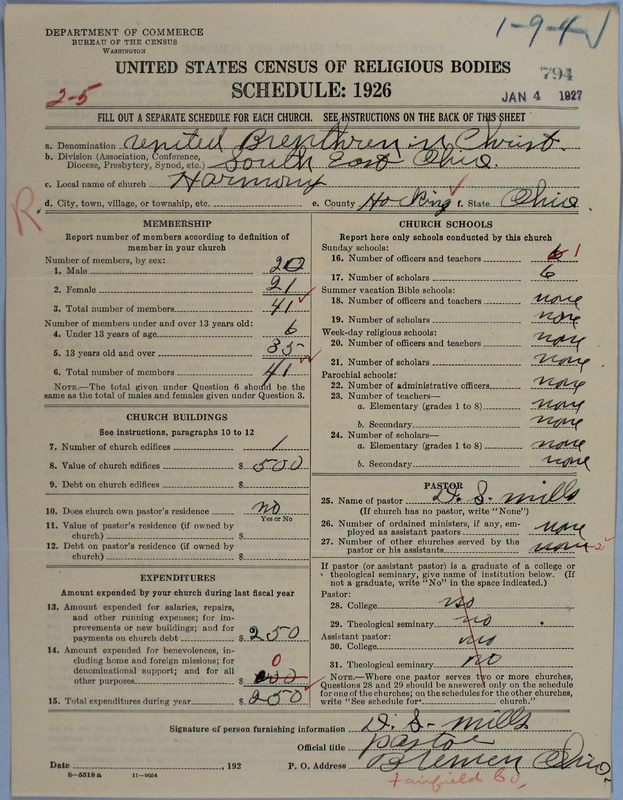 DEPARTMENT OF COMMERCE
BUREAU OF THE CENSUS
WASHINGTON
1-9-4
UNITED STATES CENSUS OF RELIGIOUS BODIES
794
2-5
SCHEDULE: 1926
JAN 4 1927
FILL OUT A SEPARATE SCHEDULE FOR EACH CHURCH. SEE INSTRUCTIONS ON THE BACK OF THIS SHEET
a. Denomination United Brenthren in Christ.
b. Division (Association, Conference, Diocese, Presbytery, Synod, etc.) South East Ohio.
c. Local name of church Harmony
d. City, town, village, or township, etc. e. County Hocking f. State Ohio
R
MEMBERSHIP
Report number of members according to definition of member in your church
Number of members, by sex:
1. Male 20
2. Female 21
3. Total number of members 41
Number of members under and over 13 years old:
4. Under 13 years of age 6
5. 13 years old and over 35
6. Total number of members 41
NOTE.—The total given under Question 6 should be the same as the total of males and females given under Question 3.
CHURCH BUILDINGS
See instructions, paragraphs 10 to 12
7. Number of church edifices 1
8. Value of church edifices $ 500
9. Debt on church edifices $
10. Does church own pastor's residence no
Yes or No
11. Value of pastor's residence (if owned by church) $
12. Debt on pastor's residence (if owned by church) $
EXPENDITURES
Amount expended by your church during last fiscal year
13. Amount expended for salaries, repairs, and other running expenses; for improvements or new buildings; and for payments on church debt $ 250
14. Amount expended for benevolences, including home and foreign missions; for denominational support; and for all other purposes $ 0
15. Total expenditures during year $ 250
CHURCH SCHOOLS
Report here only schools conducted by this church
Sunday schools:
16. Number of officers and teachers 6 1
17. Number of scholars 6
Summer vacation Bible schools:
18. Number of officers and teachers none
19. Number of scholars none
Week-day religious schools:
20. Number of officers and teachers none
21. Number of scholars none
Parochial schools:
22. Number of administrative officers none
23. Number of teachers—
a. Elementary (grades 1 to 8) none
b. Secondary none
24. Number of scholars—
a. Elementary (grades 1 to 8) none
b. Secondary none
PASTOR
25. Name of pastor D. S. mills
(If church has no pastor, write "None")
26. Number of ordained ministers, if any, employed as assistant pastors none
27. Number of other churches served by the pastor or his assistants none 2
If pastor (or assistant pastor) is a graduate of a college or theological seminary, give name of institution below. (If not a graduate, write "No" in the space indicated.)
Pastor:
28. College no
29. Theological seminary no
Assistant pastor:
30. College no
31. Theological seminary no
NOTE.—Where one pastor serves two or more churches, Questions 28 and 29 should be answered only on the schedule for one of the churches; on the schedules for the other churches, write "See schedule for church."
Signature of person furnishing information D. S. mills
Official title pastor
Date , 192 P. O. Address Bremen Ohio.
8—5518 a 11—9024
Fairfield Co.